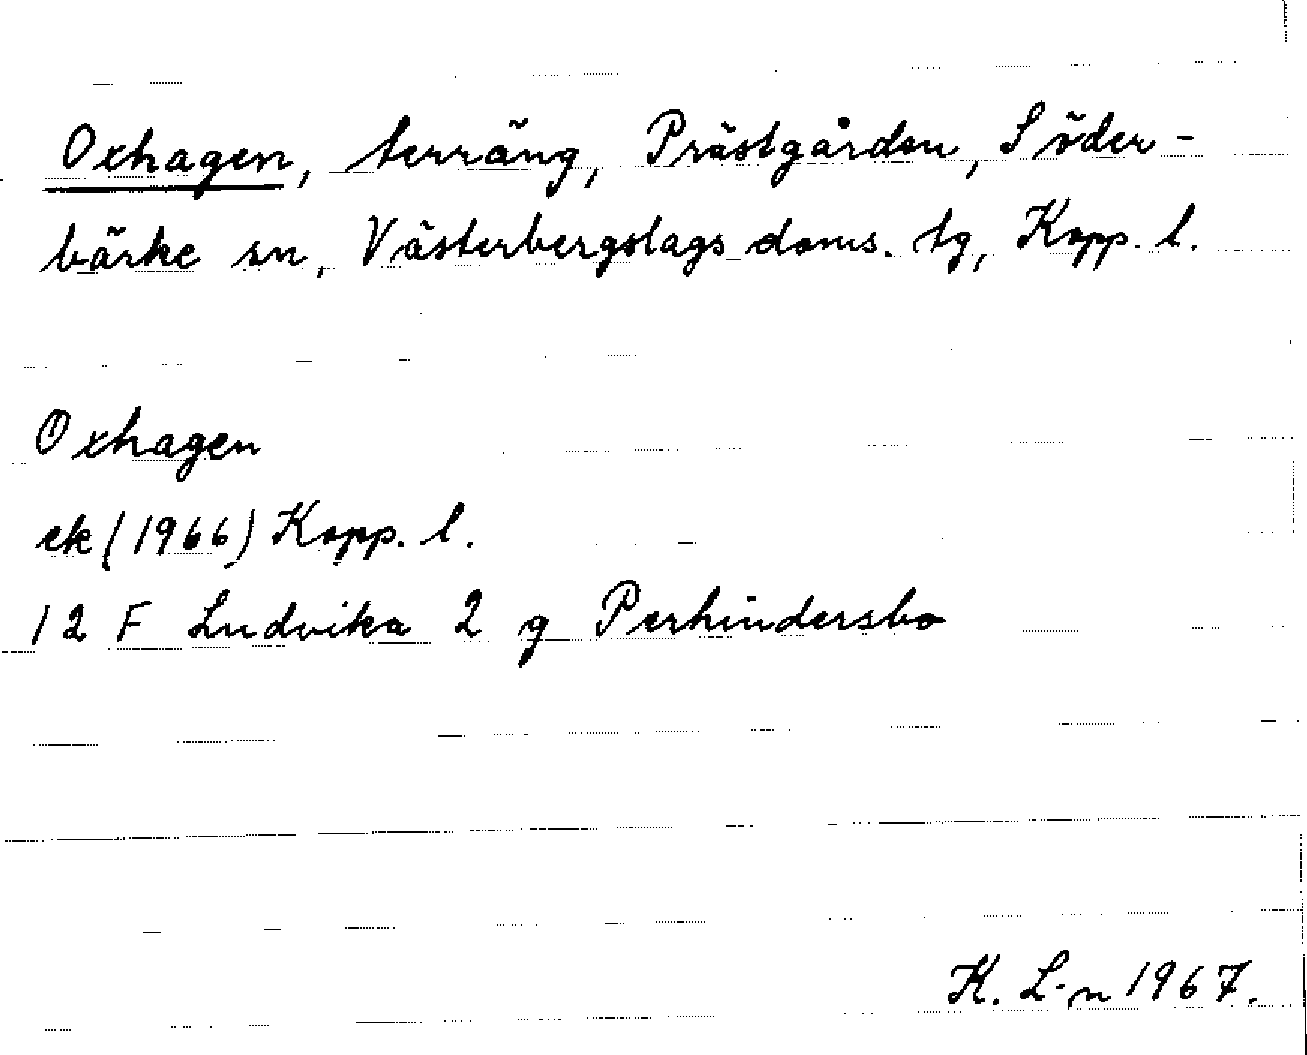 Oxhagen, terräng, Prästgården, Söder-
bärke sn, Västerbergslags doms. tg, Kopp. l.
Oxhagen
ek (1966) Kopp. l.
12 F Ludvika 2 g Perhindersbo
K. L-n 1967.